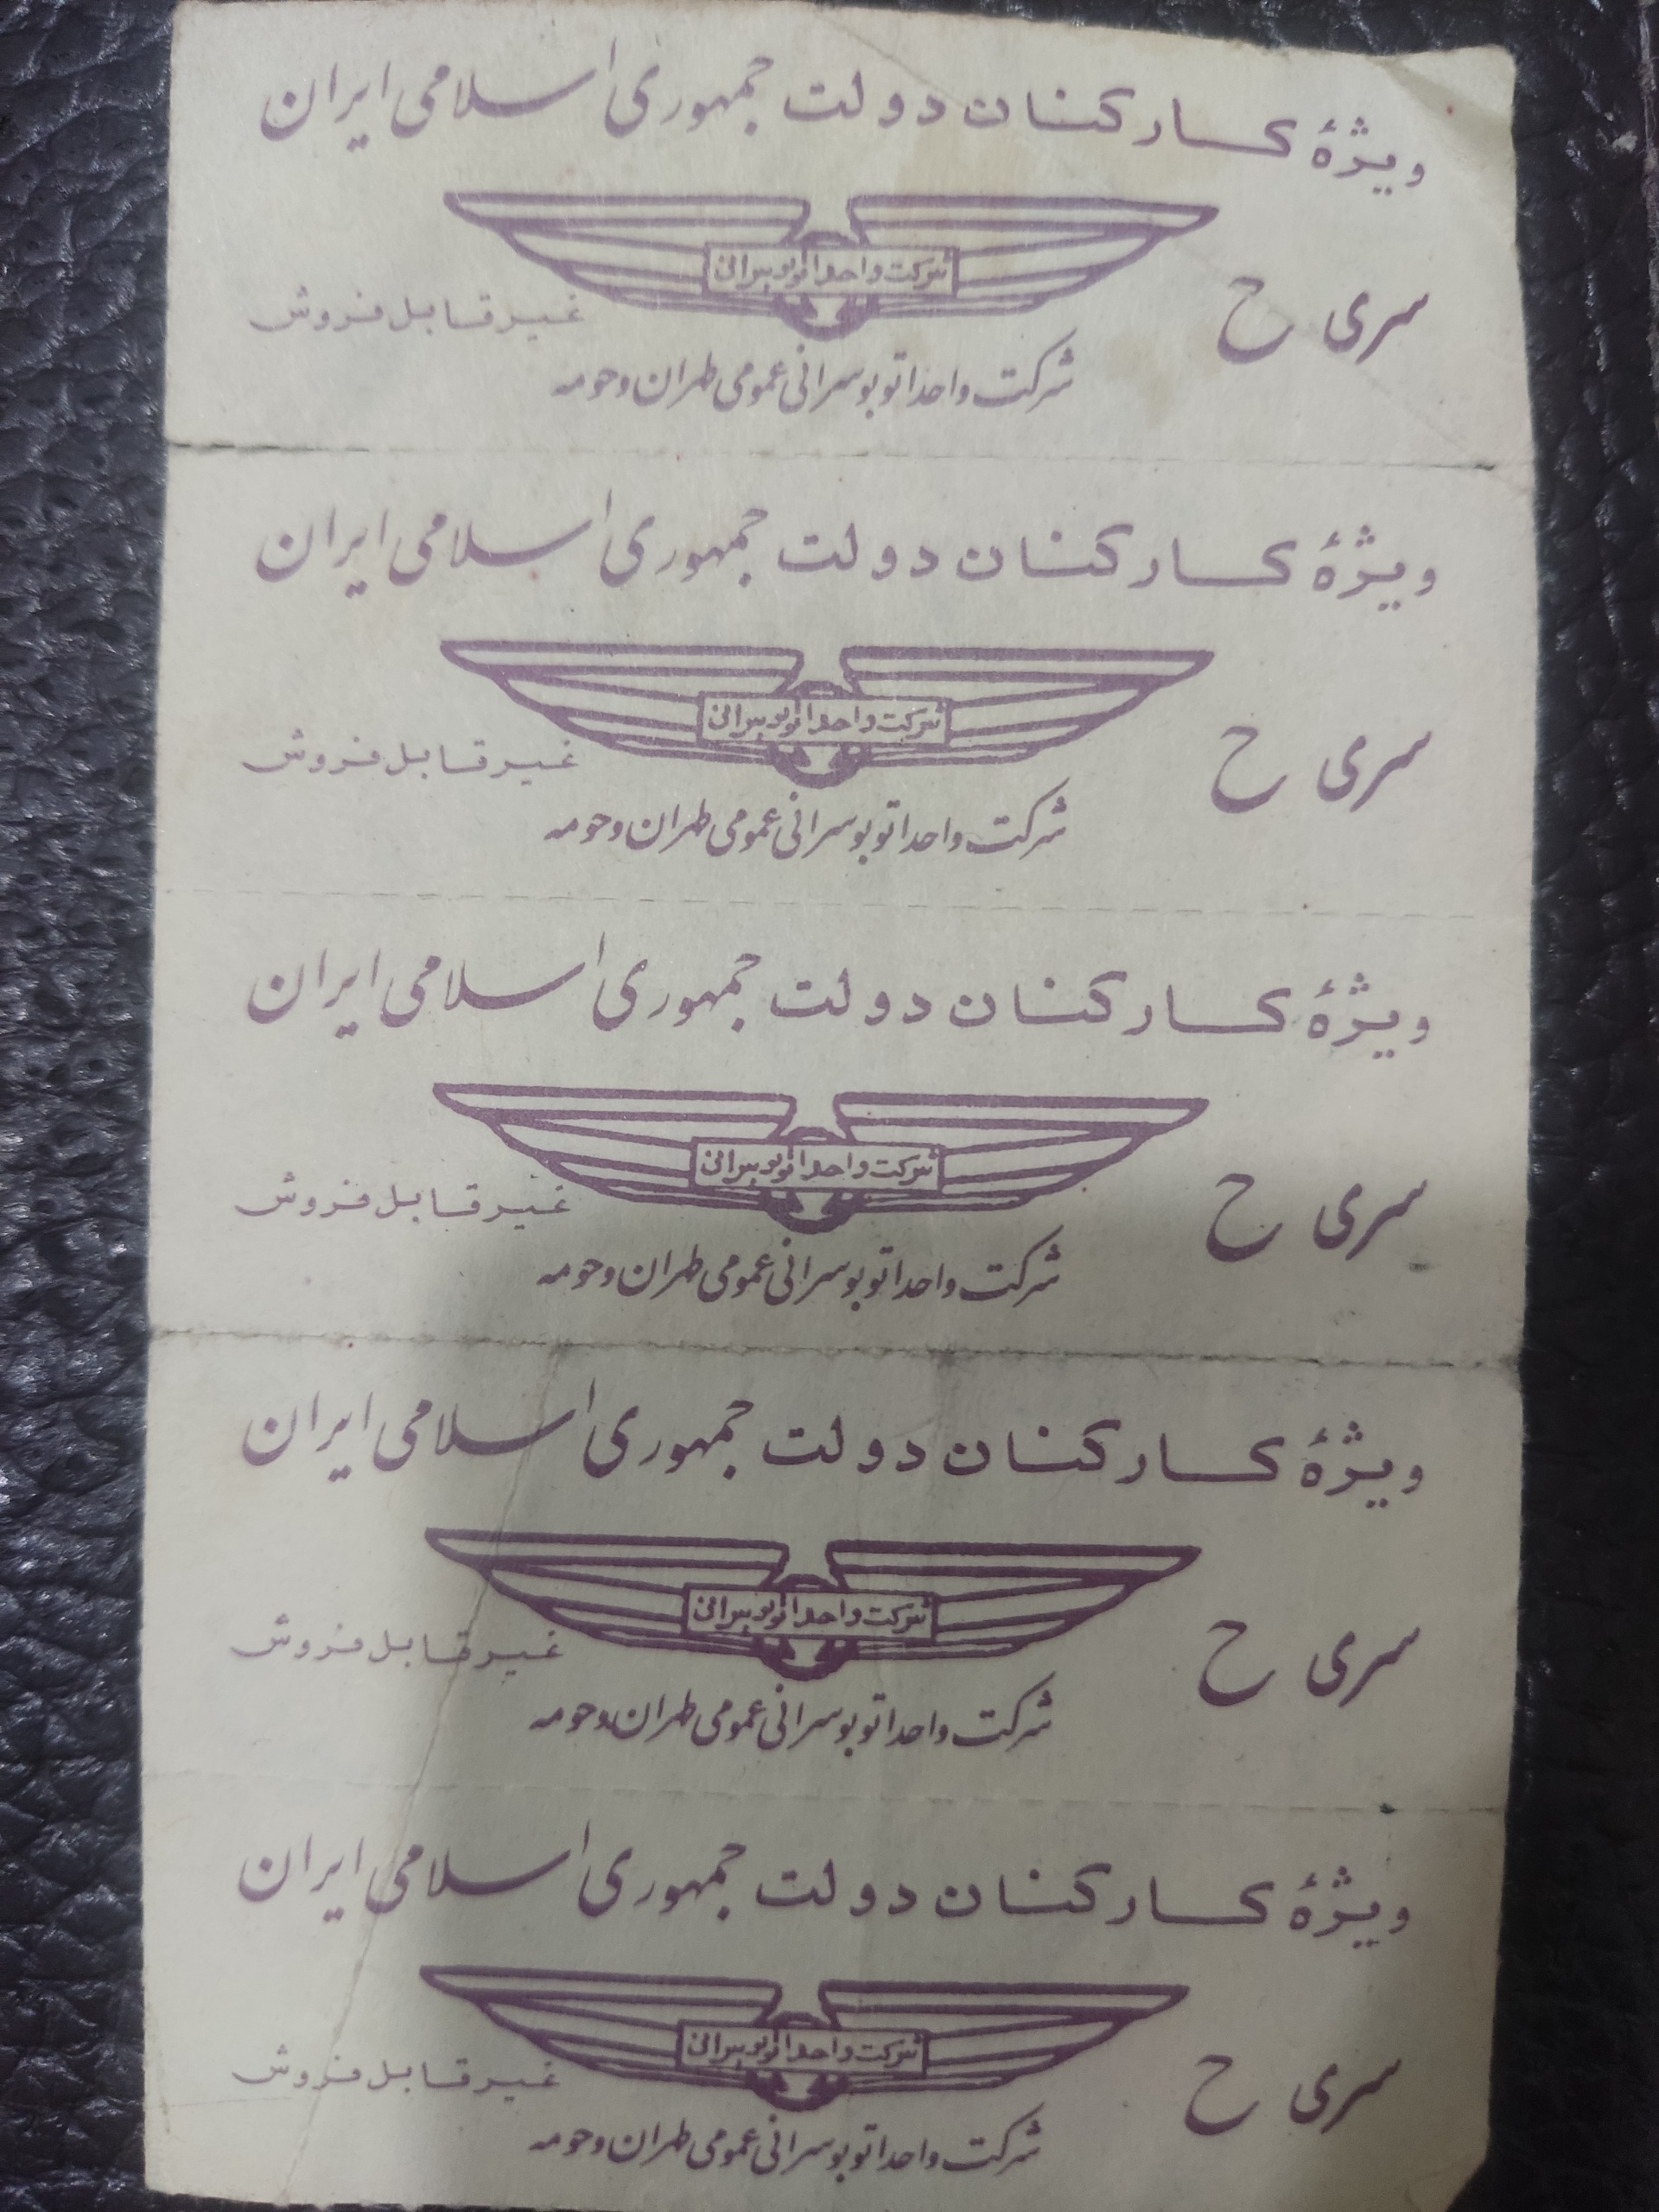 ویژهٔ کارکنان دولت جمهوری اسلامی ایران
شرکت واحد اتوبوسرانی
سری ح
غیر قابل فروش
شرکت واحد اتوبوسرانی عمومی طهران و حومه
ویژهٔ کارکنان دولت جمهوری اسلامی ایران
شرکت واحد اتوبوسرانی
سری ح
غیر قابل فروش
شرکت واحد اتوبوسرانی عمومی طهران و حومه
ویژهٔ کارکنان دولت جمهوری اسلامی ایران
شرکت واحد اتوبوسرانی
سری ح
غیر قابل فروش
شرکت واحد اتوبوسرانی عمومی طهران و حومه
ویژهٔ کارکنان دولت جمهوری اسلامی ایران
شرکت واحد اتوبوسرانی
سری ح
غیر قابل فروش
شرکت واحد اتوبوسرانی عمومی طهران و حومه
ویژهٔ کارکنان دولت جمهوری اسلامی ایران
شرکت واحد اتوبوسرانی
سری ح
غیر قابل فروش
شرکت واحد اتوبوسرانی عمومی طهران و حومه